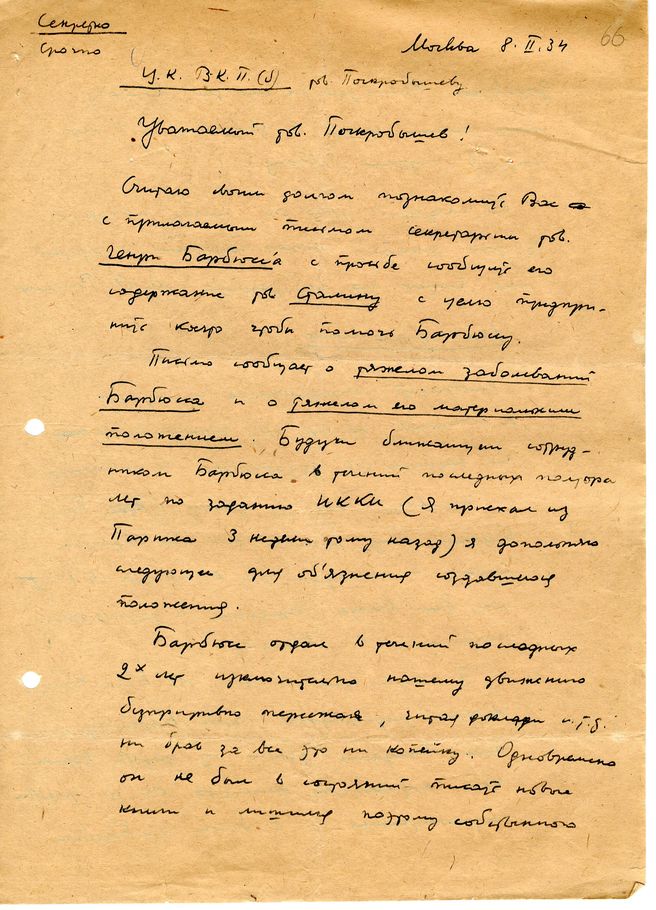 Секретно
Срочно
66
Москва 8.II.34
Ц.К. В.К.П.(б) тов. Поскребышеву
Уважаемый тов. Поскребышев!
Считаю своим долгом познакомить Вас
с прилагаемым письмом секретарши тов.
Генри Барбюс'а с просьбе сообщить его
содержание тов Сталину с целю предпри-
нять чтобы помочь Барбюсу.
Письмо сообщает о тяжелом заболеваний
Барбюса и о тяжелом его материальным
положением. Будучи ближайшим сотруд-
ником Барбюса в течений последных полтора
лет по заданию ИККИ (я приехал из
Парижа 3 недели тому назад) я дополняю
следующее для об'язнения создавшегося
положения.
Барбюс отдал в течений последных
2х лет изключительно нашему движению
безпрерывно переезжая, читая доклады и.т.д.
ни брав за все это ни копейку. Одновремено
он не был в состояний писать новые
книги и лишился поэтому собственного